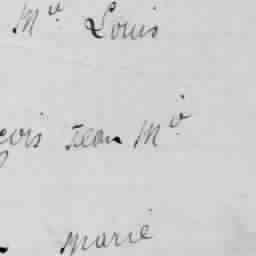 Mie Louis
çois Jean Mie
Marie